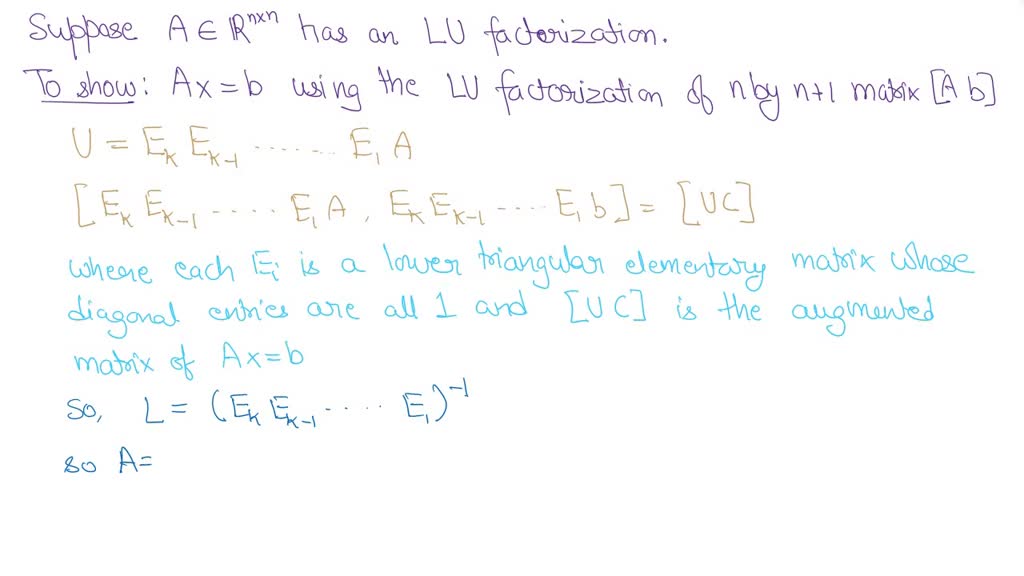 Suppose A ∈ ℝⁿˣⁿ has an LU factorization.
To show: Ax = b using the LU factorization of n by n+1 matrix [A b]
U = E_k E_{k-1} ........ E_1 A
[E_k E_{k-1} ..... E_1 A, E_k E_{k-1} ..... E_1 b] = [U C]
where each E_i is a lower triangular elementary matrix whose
diagonal entries are all 1 and [U C] is the augmented
matrix of Ax = b
So, L = (E_k E_{k-1} ..... E_1)⁻¹
so A =